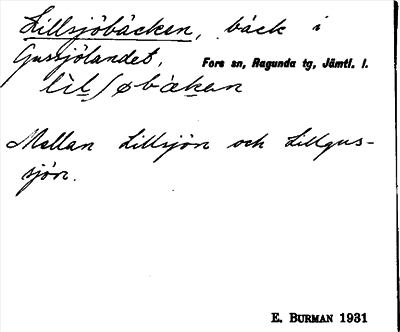 Lillsjöbäcken, bäck i
Gussjölandet, Fors sn, Ragunda tg, Jämtl. l.
lìlʃøbàkan
Mellan Lillsjön och Lillgus-
sjön.
E. BURMAN 1931